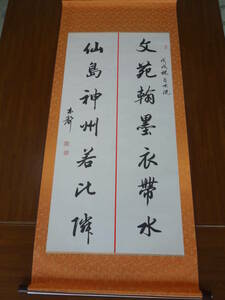 文苑翰墨衣帶水
仙島神州若比隣